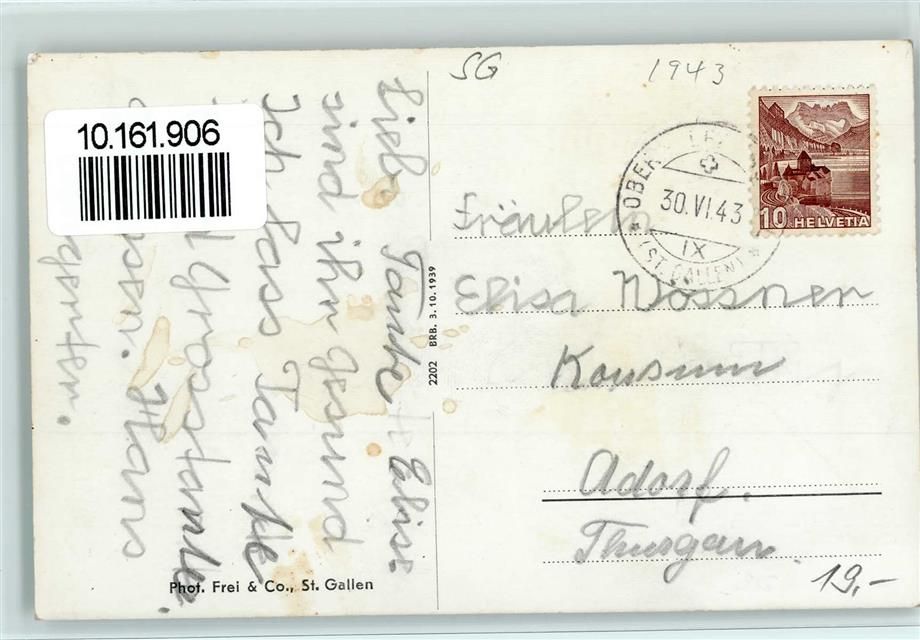 SG
1943
10.161.906
OBER
30.VI.43
IX
(ST. GALLEN)
10 HELVETIA
Liebe Tante Elise
sind ihr gesund
Ich lass Tante
Grosstante
Hans
2202 BRB. 3.10.1939
Fräulein
Elisa Wossner
Konsum
Adorf.
Thurgau
19,-
Phot. Frei & Co., St. Gallen